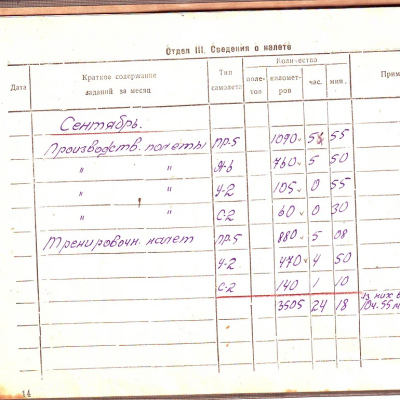 Отдел III. Сведения о налете
Дата Краткое содержание заданий за месяц Тип самолета Количество
поле-тов километ-ров час. мин. Прим
Сентябрь.
Производств. полеты ПР-5 1090 5 55
" " Я-6 760 5 50
" " У-2 105 0 55
" " С-2 60 0 30
Тренировочн. налет ПР-5 880 5 08
У-2 470 4 50
С-2 140 1 10
3505 24 18 из них в
14